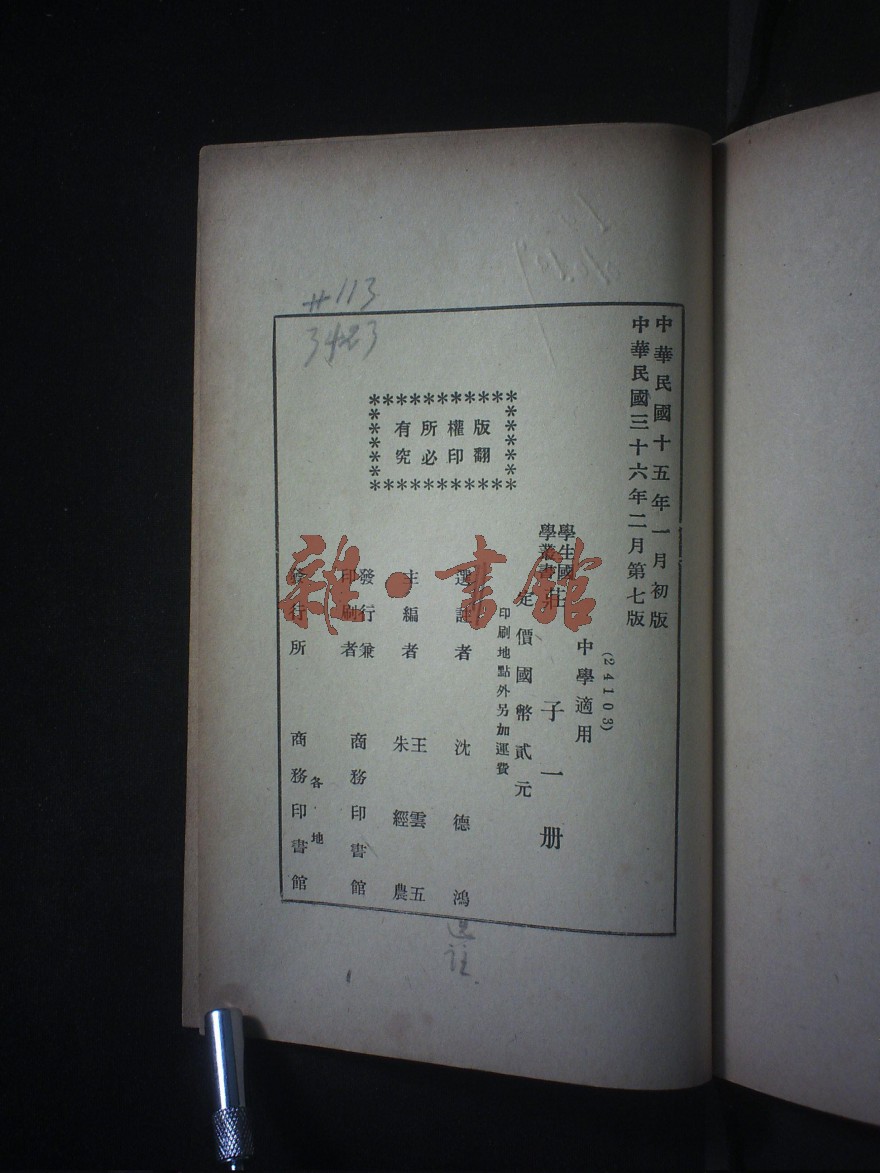 中華民國十五年一月初版
中華民國三十六年二月第七版
(24103)
中學適用
學生國
學叢書
莊子一册
定價國幣貳元
印刷地點外另加運費
版權所有
翻印必究
選註者 沈德鴻
主編者 王雲五
朱經農
發行兼
印刷者 商務印書館
發行所 各地
商務印書館
#113
3423
選註
雜·書館